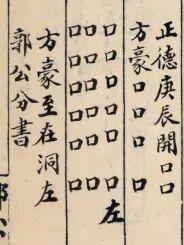 正德庚辰開口口
方豪口口口口口
口口口口口口口左
口口口口口口口
方豪至在洞左
郭公分書